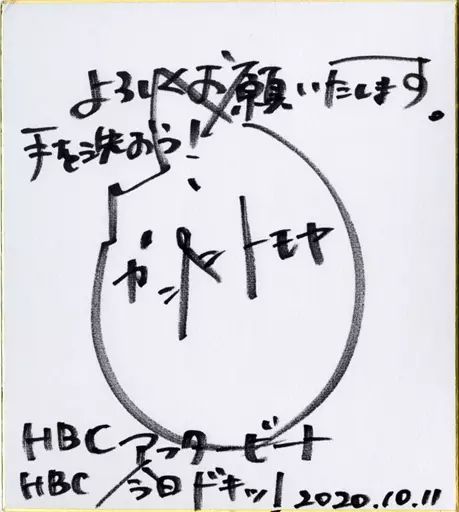 よろしくお願いいたします。
手を洗おう!
トモヤ
HBC アフタービート
HBC 今日ドキッ! 2020.10.11